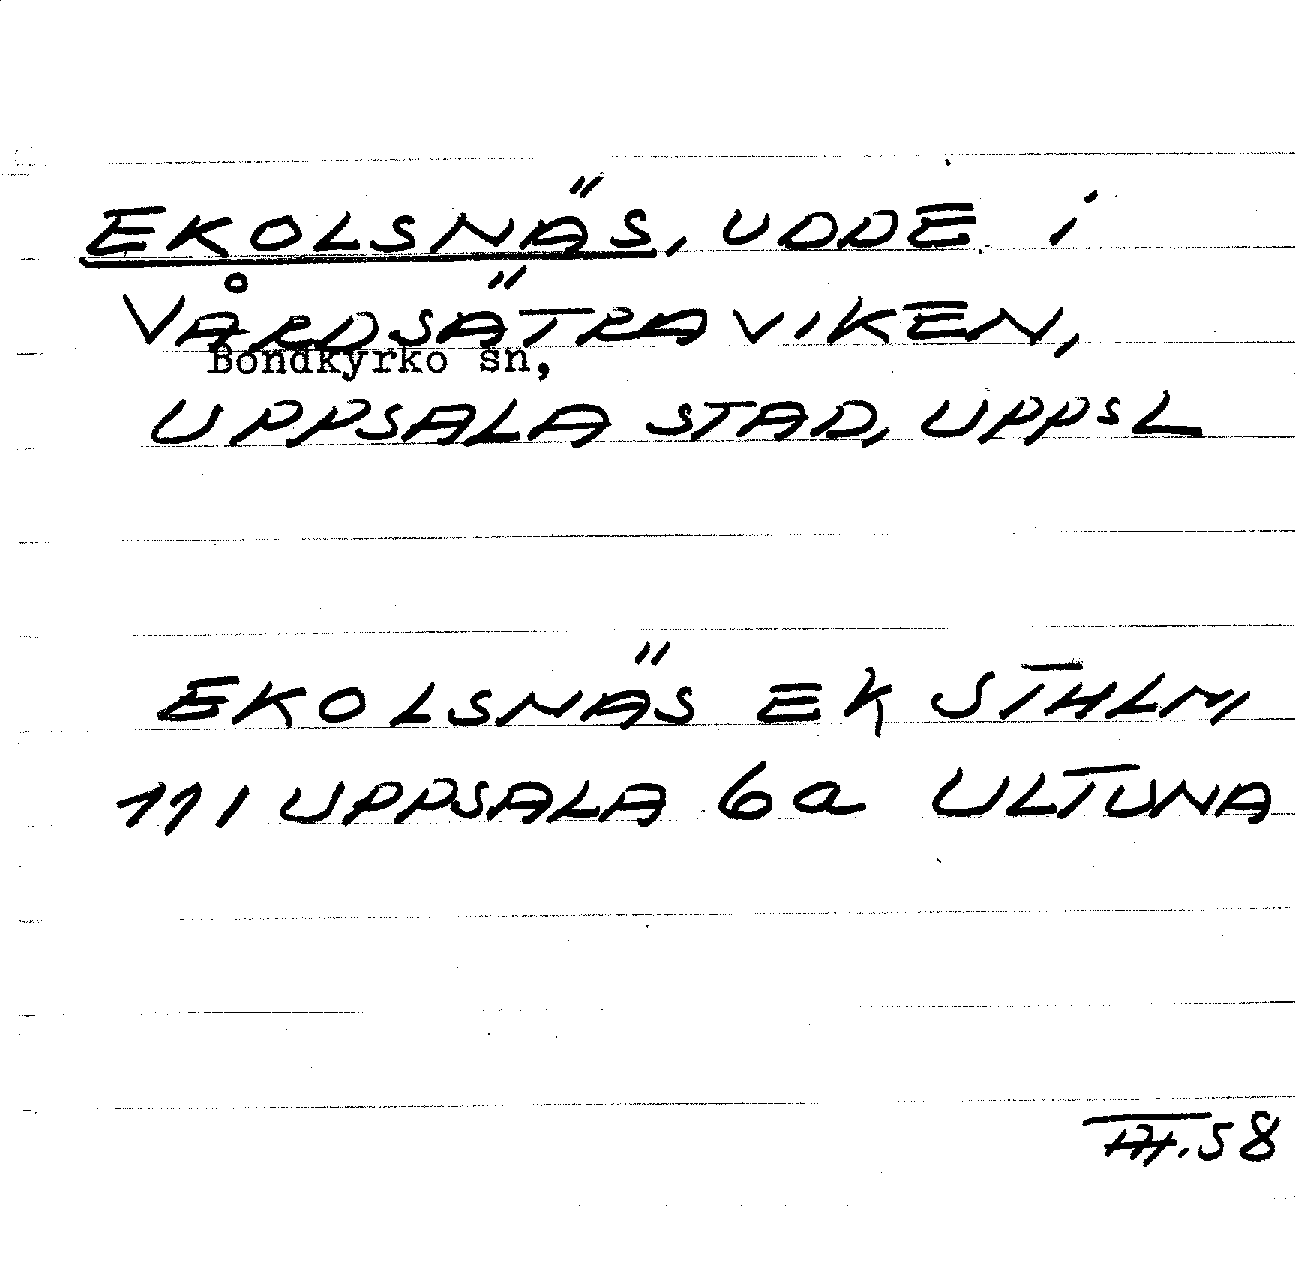 EKOLSNÄS, UDDE i
VÅRDSÄTRAVIKEN,
Bondkyrko sn,
UPPSALA STAD, UPPSL
EKOLSNÄS EK STHLM
111 UPPSALA 6a ULTUNA
.58